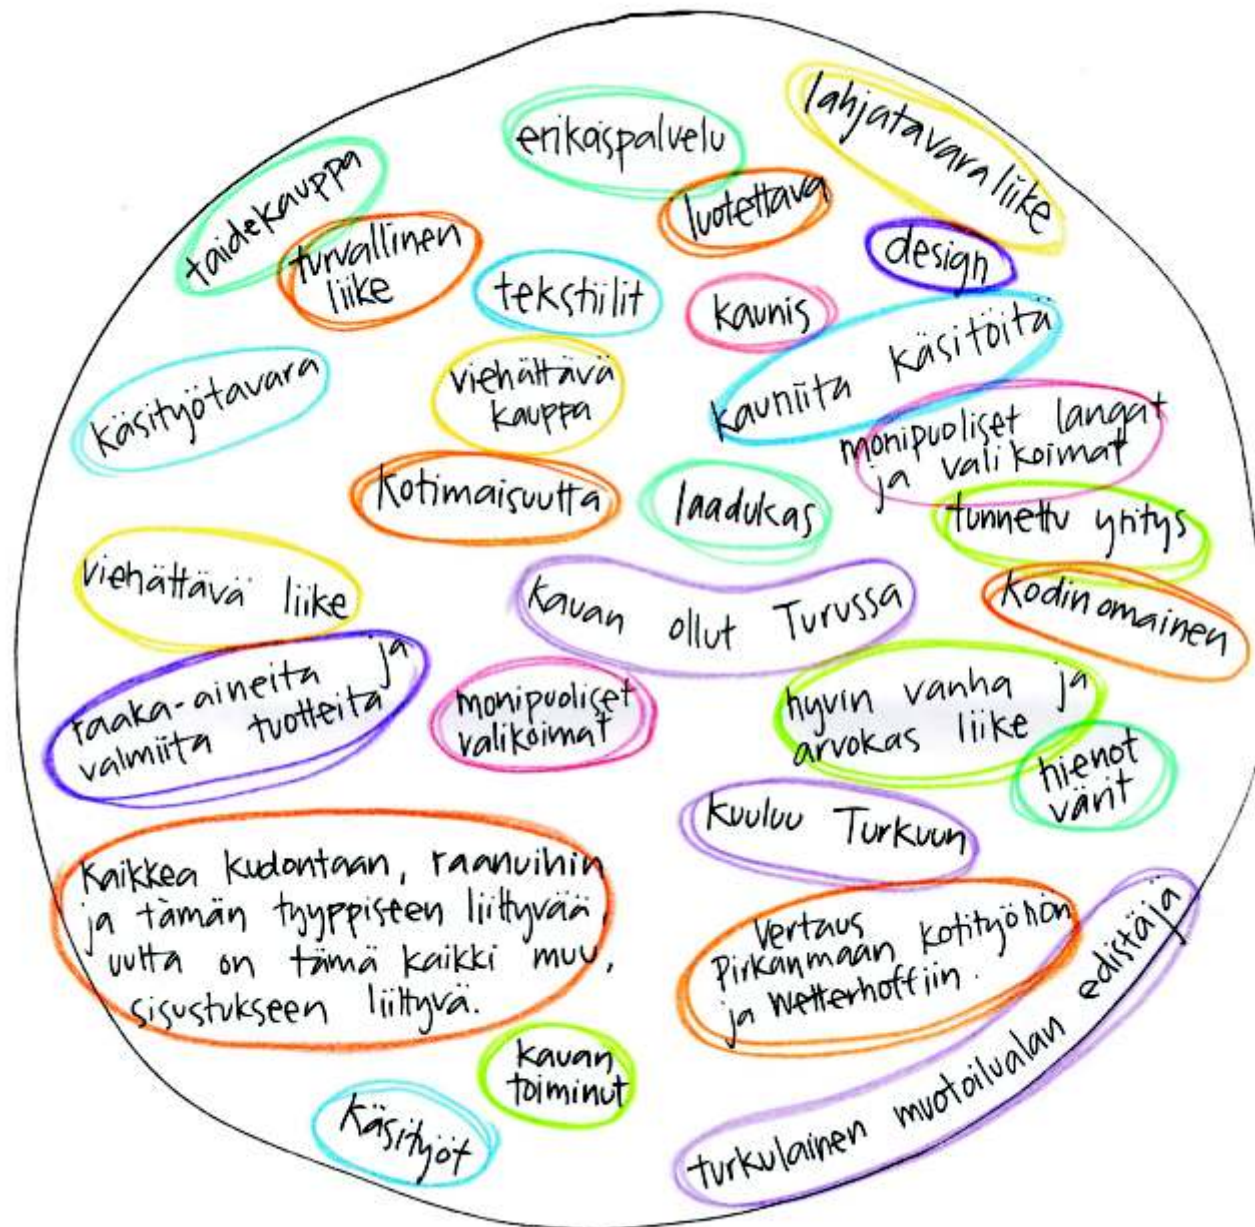 lahjatavaraliike
erikoispalvelu
taidekauppa
luotettava
turvallinen
liike
design
tekstiilit
kaunis
kauniita käsitöitä
käsityötavara
viehättävä
kauppa
monipuoliset langat
ja valikoimat
kotimaisuutta
laadukas
tunnettu yritys
viehättävä liike
kauan ollut Turussa
kodinomainen
raaka-aineita ja
valmiita tuotteita
monipuoliset
valikoimat
hyvin vanha ja
arvokas liike
hienot
värit
kuuluu Turkuun
kaikkea kudontaan, raanuihin
ja tämän tyyppiseen liittyvää,
uutta on tämä kaikki muu,
sisustukseen liittyvä.
Vertaus
Pirkanmaan kotityöhön
ja Wetterhoffiin.
turkulainen muotoilualan edistäjä
kauan
toiminut
käsityöt